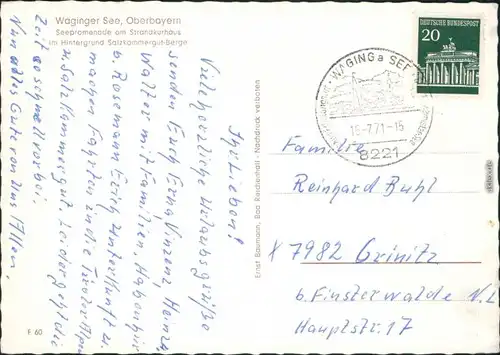 Waginger See, Oberbayern
Seepromenade am Strandkurhaus
im Hintergrund Salzkammergut-Berge
Ihr Lieben!
Viel herzliche Urlaubsgrüße
senden Euch Erna, Vinzenz, Heinz,
Walter mit Familien, Haben hier
b. Rosemann Erich Unterkunft u.
machen Fahrten in die Tiroler Alpen
u. Salzkammergut. Leider geht die
Zeit so schnell vorbei.
Nun alles Gute von Uns Allen.
F 60
Ernst Baumann, Bad Reichenhall - Nachdruck verboten
DEUTSCHE BUNDESPOST
20
WAGING a SEE
15.-7.71-15
8221
Familie
Reinhard Buhl
X 7982 Crinitz
b. Finsterwalde N.L.
Hauptstr. 17